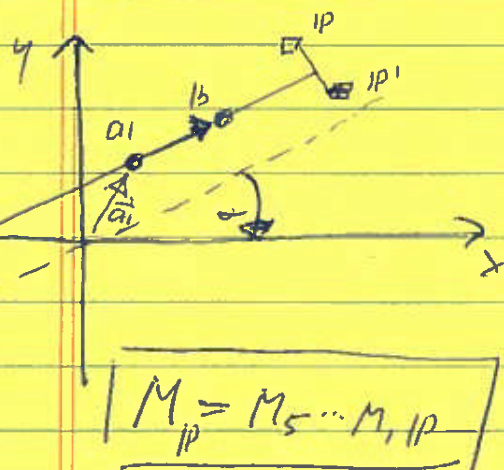 y
𝕡
𝕡'
𝕓
𝕒
α
x
M𝕡 = M₅ ⋯ M₁ 𝕡